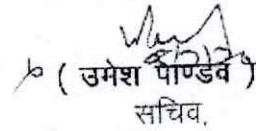 ( उमेश पाण्डेव )
सचिव.